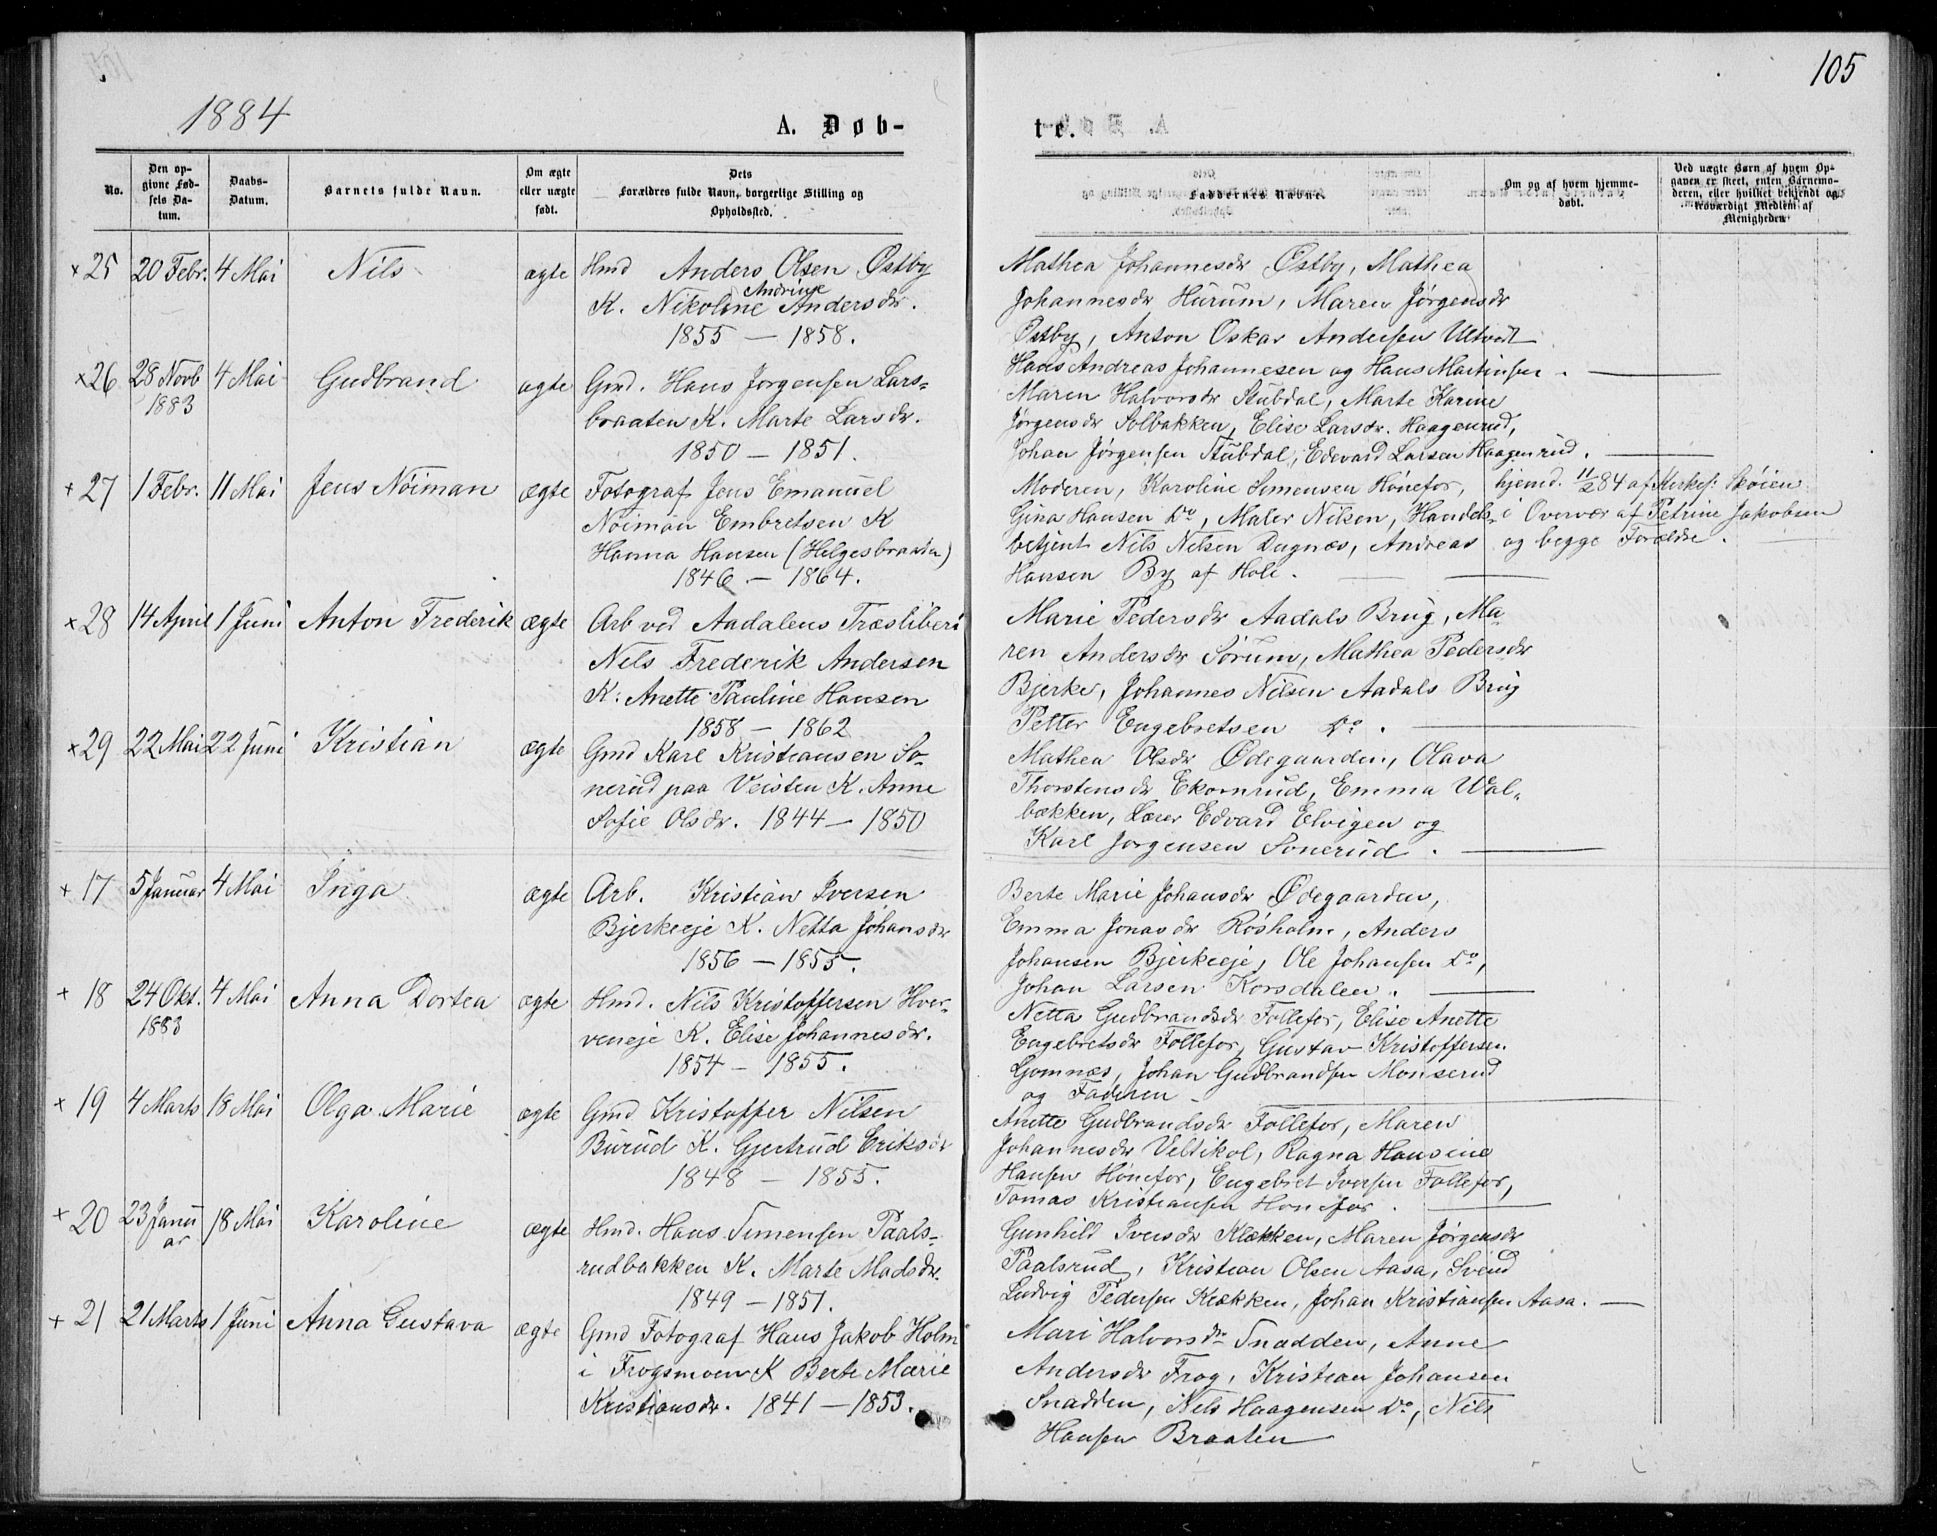 105
1884
A. Døb-
te.
No.
Den op-
givne Fød-
sels Da-
tum.
Daabs-
Datum.
Barnets fulde Navn.
Om ægte
eller uægte
født.
Dets
Forældres fulde Navn, borgerlige Stilling og
Opholdssted.
Faddernes Navne.
Om og af hvem hjemme-
døbt.
Ved uægte Børn af hvem Op-
gaven er skeet, enten Barnemo-
deren, eller hvilket bekjendt og
troværdigt Medlem af
Menigheden
× 25 20 Febr. 4 Mai Nils ægte Hmd Anders Olsen Østby
Andrine
K. Nikoline Andersdr.
1855 – 1858.
Mathea Johannesdr Østby, Mathea
Johannesdr Hurum, Maren Jørgensdr
Østby, Anton Oskar Andersen Ultvedt
Hans Andreas Johannesen og Hans Martinsen.
× 26 28 Novb 4 Mai Gudbrand ægte Gmd. Hans Jørgensen Lars-
1883
braaten K. Marte Larsdr.
1850 – 1851.
Maren Halvorsdr Stubdal, Marte Karine
Jørgensdr Solbakken, Elise Larsdr. Haagenrud,
Johan Jørgensen Stubdal, Edevard Larsen Haagenrud.
× 27 1 Febr. 11 Mai Jens Nöiman ægte Fotograf Jens Emanuel
Nöiman Embretsen K
Hanna Hansen (Helgesbraaten)
1846 – 1864.
Moderen, Karoline Simensen Hønefos, hjemd. 11/2 84 af Kirkes: Skøien
Gina Hansen Do, Maler Nilsen, Handels- i Overvær af Petrine Jakobsen
betjent Nils Nelsen Dagnæs, Andreas og begge Forældre.
Hansen By af Hole.
× 28 14 April 1 Juni Anton Frederik ægte Arb ved Aadalens Træsliberi
Nels Frederik Andersen
K. Anette Pauline Hansen
1858 – 1862
Marie Pedersdr Aadals Brug, Ma-
ren Andersdr Sørum, Mathea Pedersdr
Bjerke, Johannes Nilsen Aadals Brug
Petter Engebretsen Do.
× 29 22 Mai 22 Juni Kristian ægte Gmd Karl Kristiansen So-
nerud paa Veisten K. Anne
Sofie Olsdr. 1844 – 1850
Mathea Olsdr Ødegaarden, Olava
Thorstensdr Ekornrud, Emma Wal-
bækken, Lærer Edvard Elvigen og
Karl Jørgensen Sonerud.
× 17 5 Januar 4 Mai Inga ægte Arb. Kristian Iversen
Bjerkeeje K. Netta Johansdr
1856 – 1855.
Berte Marie Johansdr Ødegaarden,
Emma Jonasdr Røsholm, Anders
Johansen Bjerkeeje, Ole Johansen Do,
Johan Larsen Korsdalen.
× 18 24 Okt. 4 Mai Anna Dortea ægte Hmd. Nils Kristoffersen Hver-
1883
veneje K. Elise Johannesdr.
1854 – 1855.
Netta Gudbrandsdr Follefos, Elise Anette
Engebretsdr Follefos, Gustav Kristoffersen
Gomnæs, Johan Gudbrandsen Monserud
og Faderen
× 19 4 Marts 18 Mai Olga Marie ægte Gmd Kristoffer Nilsen
Burud K. Gjertrud Eriksdr
1848 – 1855.
Anette Gudbrandsdr Follefos, Maren
Johannesdr Veltikol, Ragna Hansine
Hansen Hønefos, Engebret Iversen Follefos,
Tomas Kristiansen Honefos.
× 20 23 Janu 18 Mai Karoline ægte Hmd. Hans Simensen Paals-
ar
rudbakken K. Marte Madsdr.
1849 – 1851.
Gunhild Iversdr Klækken, Maren Jørgensdr
Paalsrud, Kristian Olsen Aasa, Svend
Ludvig Pedersen Klækken, Johan Kristiansen Aasa.
× 21 21 Marts 1 Juni Anna Gustava ægte Gmd Fotograf Hans Jakob Holm
i Frogsmoen K Berte Marie
Kristiansdr. 1841 – 1853.
Mari Halvorsdr Snadden, Anne
Andersdr Frog, Kristian Johansen
Snadden, Nils Haagensen Do, Nils
Hansen Braaten